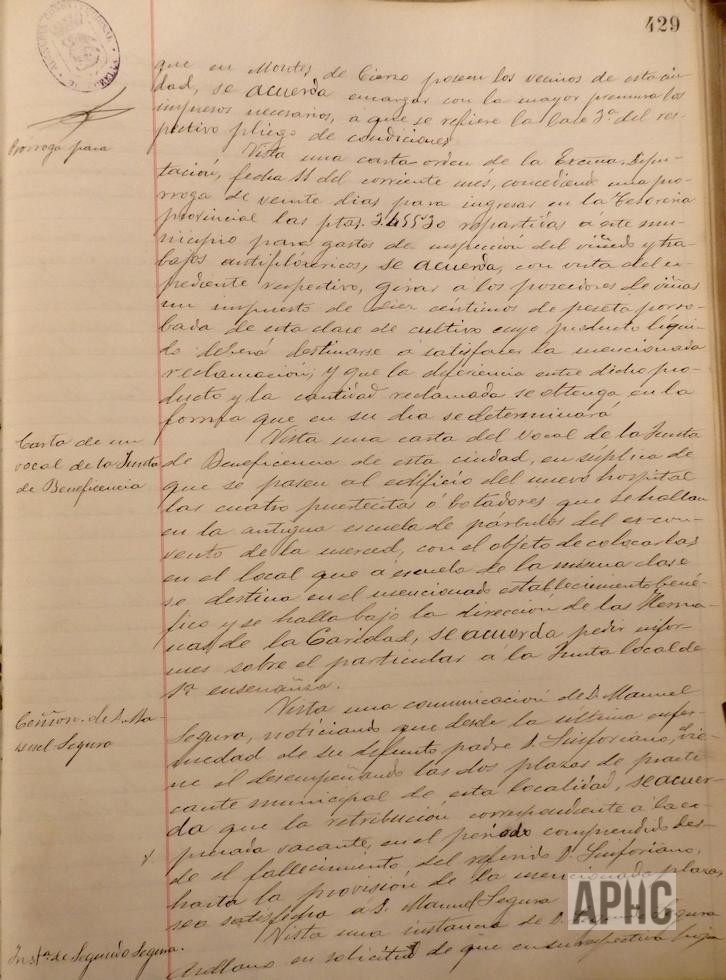 429
que en Montes de Cierzo poseen los vecinos de esta ciu-
dad, se acuerda encargar con la mayor premura los
impresos necesarios, a que se refiere la base 3ª del res-
pectivo pliego de condiciones
Prorroga para
Vista una carta-orden de la Excma. Dipu-
tación, fecha 11 del corriente mes, concediendo una pro-
rroga de veinte dias para ingresar en la Tesoreria
provincial las ptas. repartidas á este mu-
nicipio para gastos de inspeccion del viñedo y tra-
bajos antifiloxéricos, se acuerda, con vista del es-
pediente respectivo, girar a los poseedores de viñas
un impuesto de diez céntimos de peseta por ro-
bada de esta clase de cultivo cuyo producto líqui-
do deberá destinarse á satisfacer la mencionada
reclamación; y que la diferencia entre dicho pro-
ducto y la cantidad reclamada se obtenga en la
forma que en su dia se determinará
Carta de un
vocal de la Junta
de Beneficencia
Vista una carta del vocal de la Junta
de Beneficencia de esta ciudad, en suplica de
que se pasen al edificio del nuevo hospital
las cuatro puertecitas ó botadores que se hallan
en la antigua escuela de párbulos del ex-con-
vento de la merced, con el objeto de colocarlas
en el local que á escuela de la misma clase
se destina en el mencionado establecimiento bené-
fico y se halla bajo la direccion de las Herma-
nas de la Caridad, se acuerda pedir infor-
mes sobre el particular á la Junta local de
1ª enseñanza.
Comon. de D. Ma-
nuel Segura
Vista una comunicacion de D. Manuel
Segura, noticiando que desde la última enfer-
medad de su difunto padre D. Sinforiano, vie-
ne él desempeñando las dos plazas de practi-
cante municipal de esta localidad, se acuer-
da que la retribución correspondiente á la ex-
presada vacante, en el período comprendido des-
de el fallecimiento del referido D. Sinforiano,
hasta la provisión de la mencionada plaza,
sea satisfecha á D. Manuel Segura
Insta. de Segundo Segura.
Vista una instancia de D. Segundo Segura
Arellano en solicitud de que en su respectiva
APHG